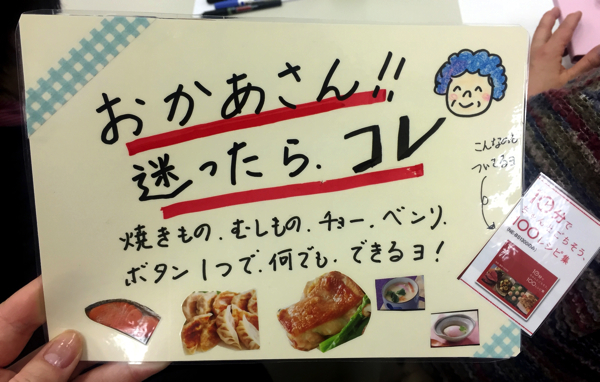 おかあさん!!
迷ったら、コレ
こんなのも
ついてるヨ
焼きもの、むしもの、チョー、ベンリ、
ボタン1つで、何でも、できるヨ!
10分で
100レシピ集